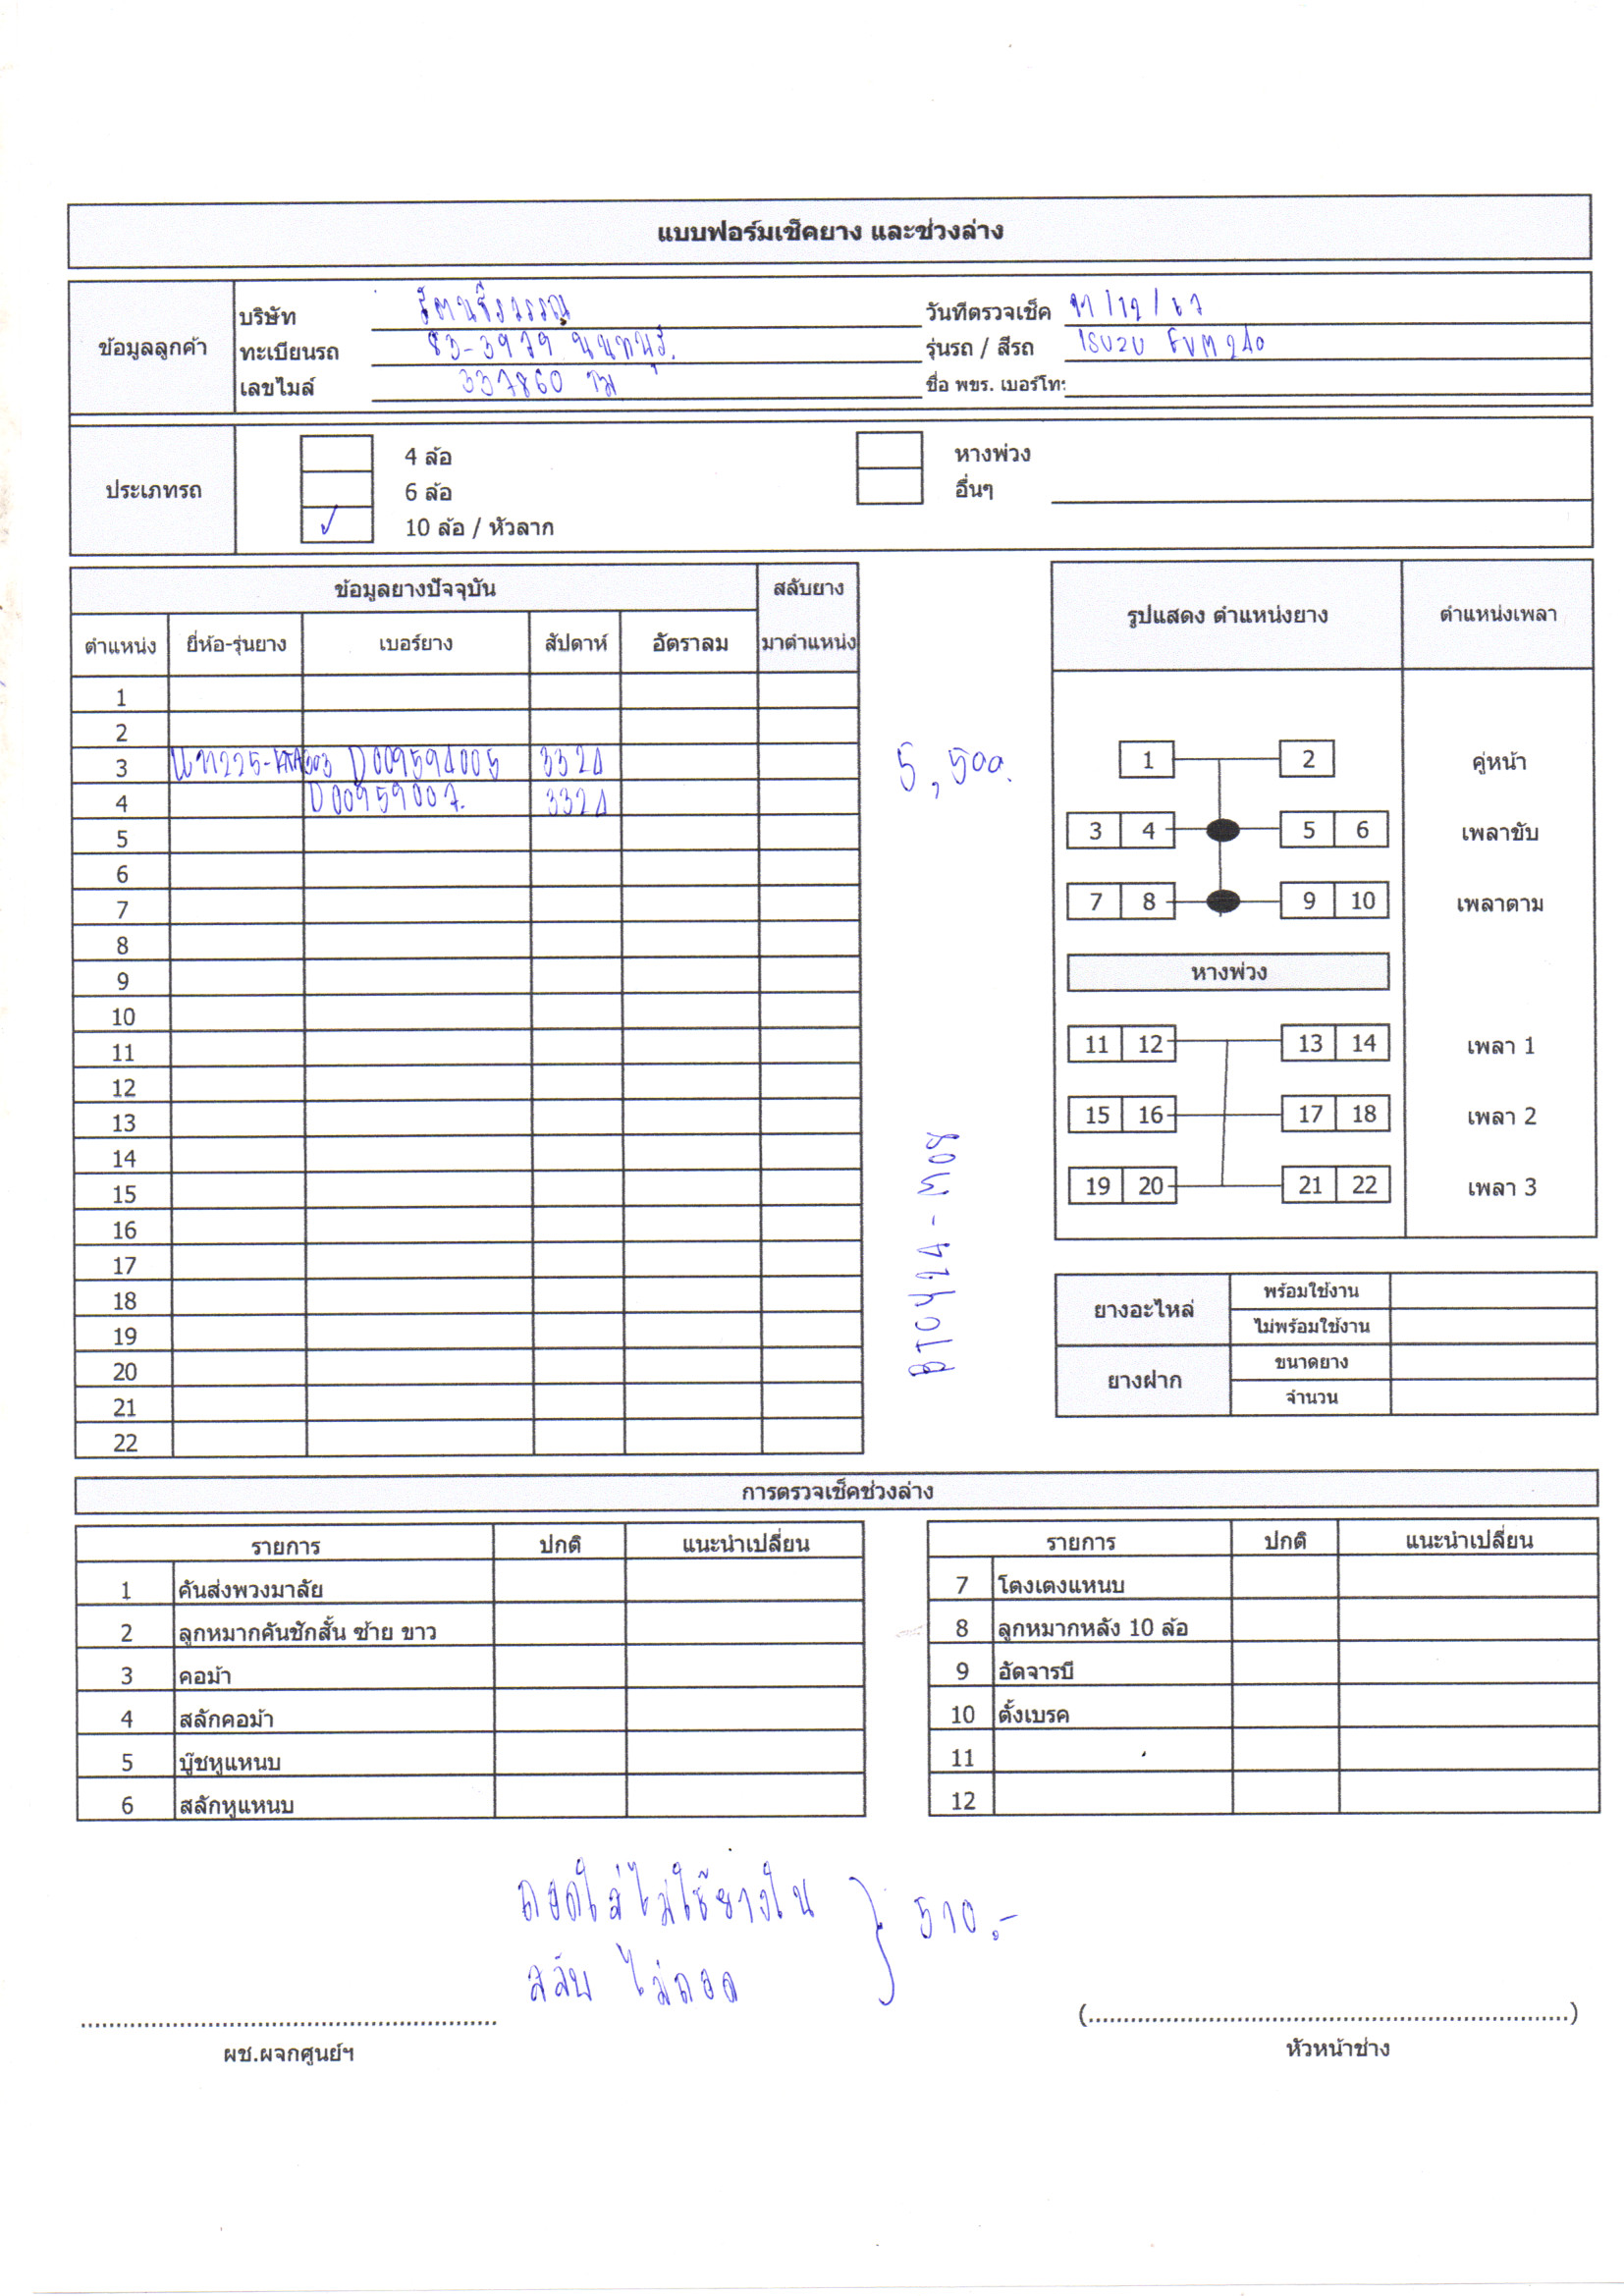 แบบฟอร์มเช็คยาง และช่วงล่าง
ข้อมูลลูกค้า
บริษัท
วันที่ตรวจเช็ค 11/12/67
ทะเบียนรถ 83-3979 นนทบุรี
รุ่นรถ / สีรถ ISUZU FVM240
เลขไมล์ 337860
ชื่อ พขร. เบอร์โท:
ประเภทรถ
4 ล้อ
หางพ่วง
6 ล้อ
อื่นๆ
✓ 10 ล้อ / หัวลาก
ข้อมูลยางปัจจุบัน สลับยาง
ตำแหน่ง ยี่ห้อ-รุ่นยาง เบอร์ยาง สัปดาห์ อัตราลม มาตำแหน่ง
1
2
3 D009594005 3324
4 D00959007. 3324
5
6
7
8
9
10
11
12
13
14
15
16
17
18
19
20
21
22
5,500.
รูปแสดง ตำแหน่งยาง ตำแหน่งเพลา
1 2 คู่หน้า
3 4 5 6 เพลาขับ
7 8 9 10 เพลาตาม
หางพ่วง
11 12 13 14 เพลา 1
15 16 17 18 เพลา 2
19 20 21 22 เพลา 3
ยางอะไหล่ พร้อมใช้งาน
ไม่พร้อมใช้งาน
ยางฝาก ขนาดยาง
จำนวน
การตรวจเช็คช่วงล่าง
รายการ ปกติ แนะนำเปลี่ยน
1 คันส่งพวงมาลัย
2 ลูกหมากคันชักสั้น ซ้าย ขาว
3 คอม้า
4 สลักคอม้า
5 บู๊ชหูแหนบ
6 สลักหูแหนบ
รายการ ปกติ แนะนำเปลี่ยน
7 โตงเตงแหนบ
8 ลูกหมากหลัง 10 ล้อ
9 อัดจารบี
10 ตั้งเบรค
11
12
ถอดใส่ไม่ใช้ยางใน
สลับ ไม่ถอด
510.-
ผช.ผจกศูนย์ฯ
(....................)
หัวหน้าช่าง